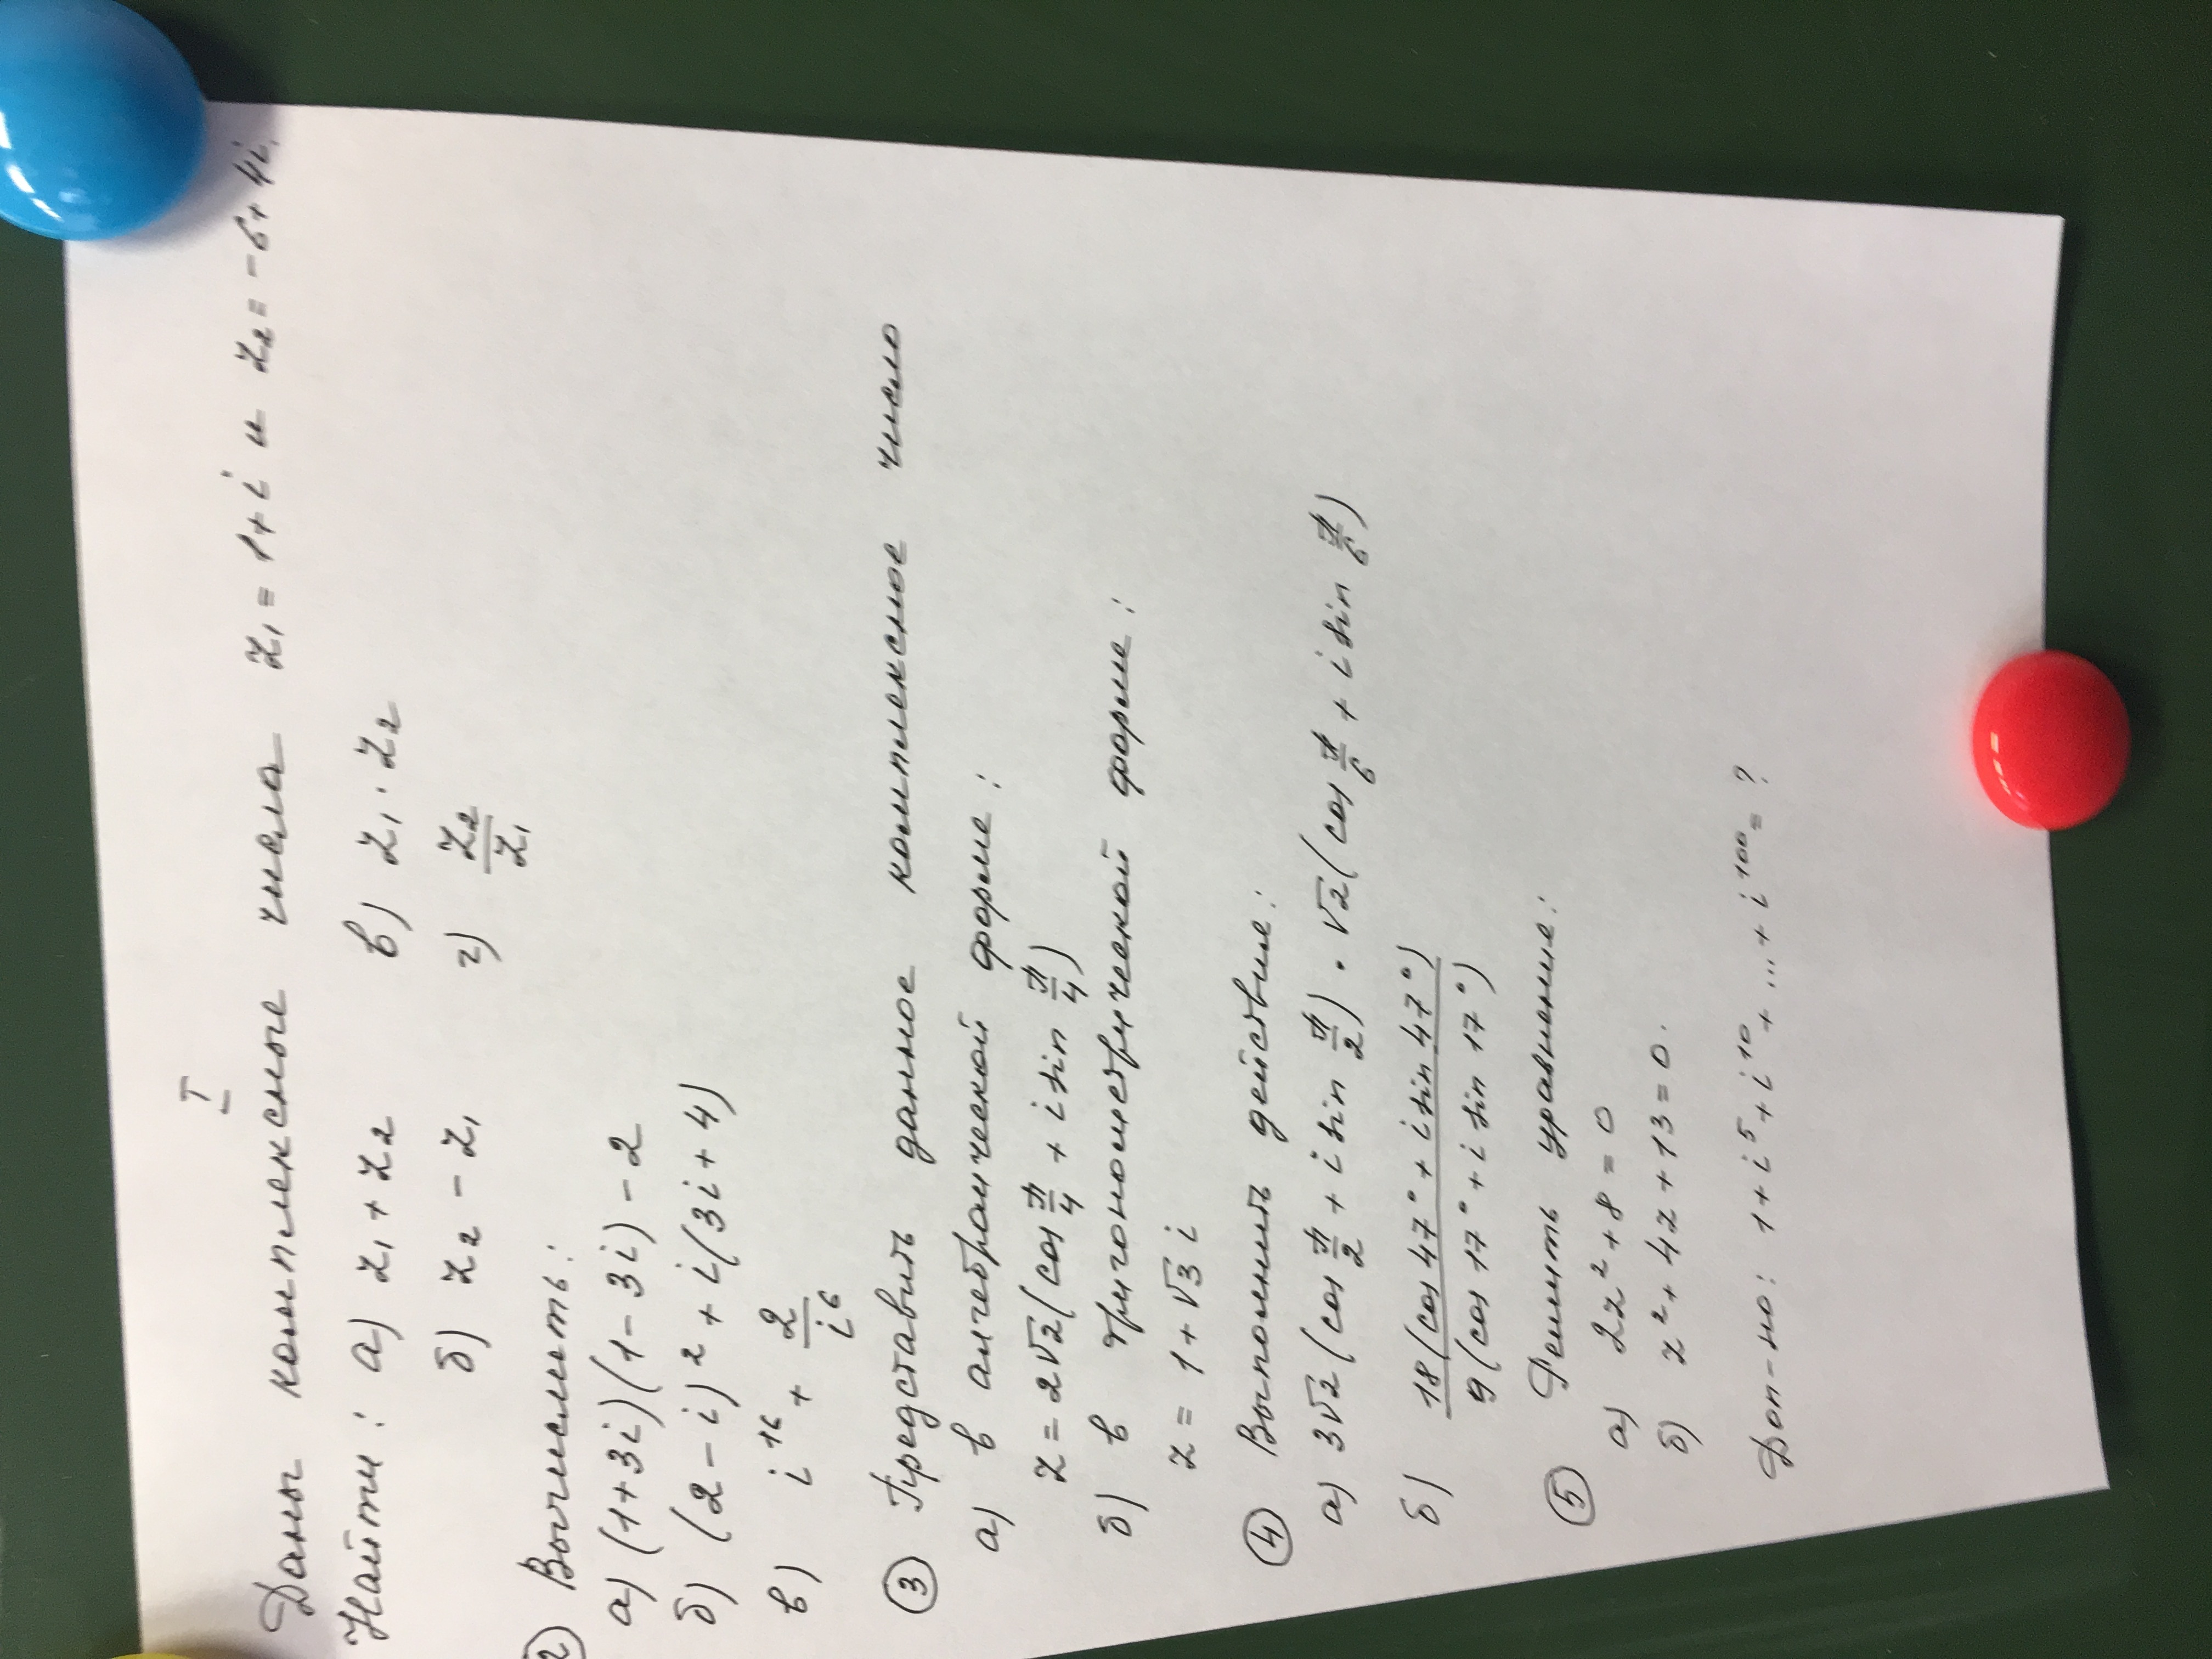 I
Даны комплексные числа z₁ = 1 + i и z₂ = -6 + 4i.
Найти: а) z₁ + z₂ в) z₁ · z₂
б) z₂ - z₁ г) z₂/z₁
② Вычислить:
а) (1+3i)(1-3i) - 2
б) (2-i)² + i(3i+4)
в) i¹⁶ + 2/i⁶
③ Представить данное комплексное число
а) в алгебраической форме:
z = 2√2(cos π/4 + i sin π/4)
б) в тригонометрической форме:
z = 1 + √3 i
④ Выполнить действие:
а) 3√2(cos π/2 + i sin π/2) · √2(cos π/6 + i sin π/6)
б) 18(cos 47° + i sin 47°)
9(cos 17° + i sin 17°)
⑤ Решить уравнение:
а) 2z² + 8 = 0
б) z² + 4z + 13 = 0.
Доп-но: 1 + i⁵ + i¹⁰ + ... + i¹⁰⁰ = ?